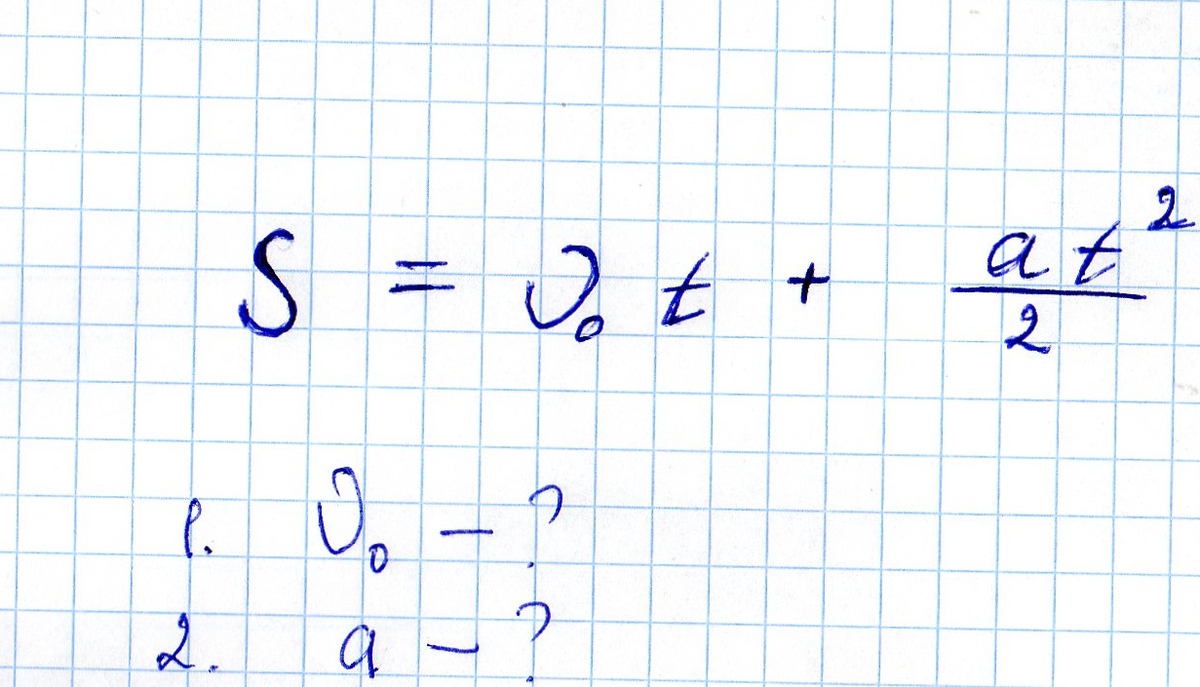 S = υ₀ t + at²/2
1. υ₀ – ?
2. a – ?